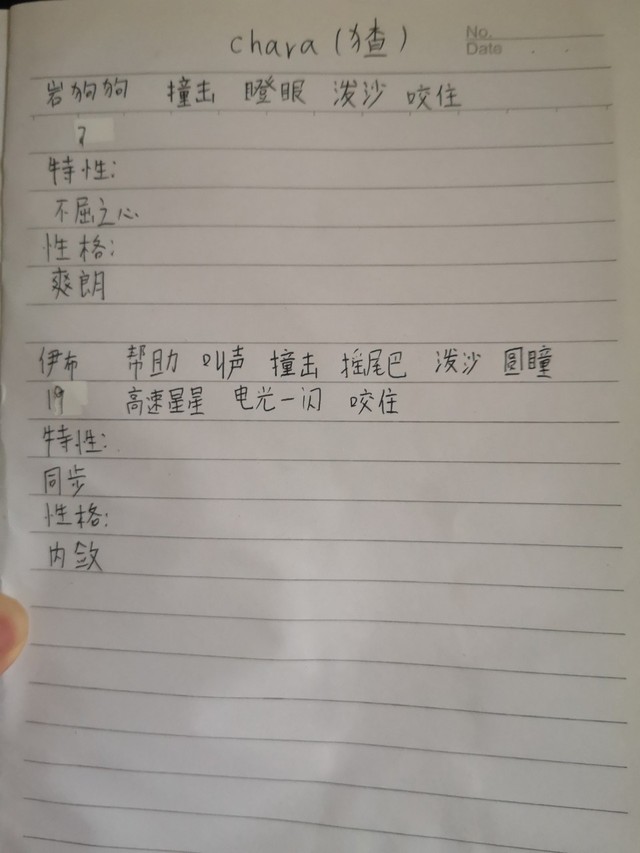 chara (猹)
No.
Date
岩狗狗 撞击 瞪眼 泼沙 咬住
7
特性:
不屈之心
性格:
爽朗
伊布 帮助 叫声 撞击 摇尾巴 泼沙 圆瞳
19 高速星星 电光一闪 咬住
特性:
同步
性格:
内敛